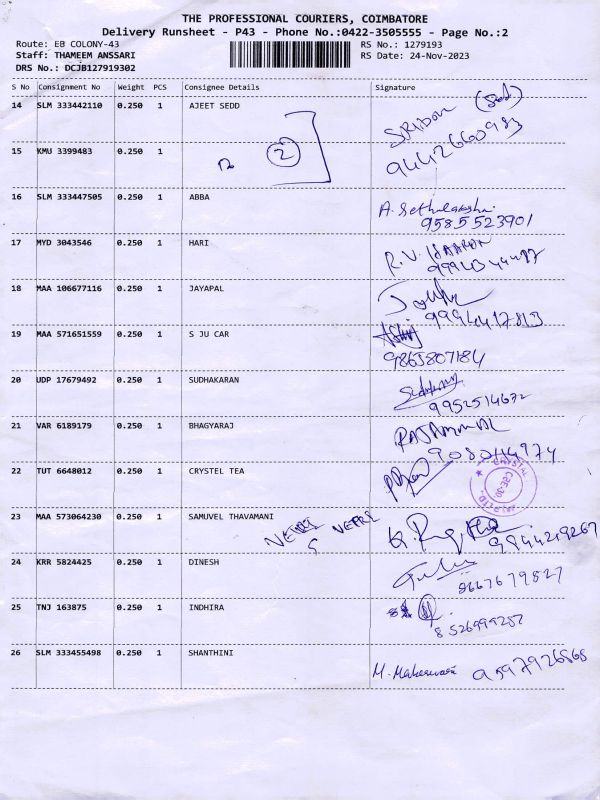 THE PROFESSIONAL COURIERS, COIMBATORE
Delivery Runsheet - P43 - Phone No.:0422-3505555 - Page No.:2
Route: EB COLONY-43 RS No.: 1279193
Staff: THAMEEM ANSSARI RS Date: 24-Nov-2023
DRS No.: DCJB127919302
S No Consignment No Weight PCS Consignee Details Signature
14 SLM 333442110 0.250 1 AJEET SEDD
15 KMU 3399483 0.250 1 2 9442660983
16 SLM 333447505 0.250 1 ABBA
9585523901
17 MYD 3043546 0.250 1 HARI R.V.
18 MAA 106677116 0.250 1 JAYAPAL
19 MAA 571651559 0.250 1 S JU CAR
9865807184
20 UDP 17679492 0.250 1 SUDHAKARAN
9952514672
21 VAR 6189179 0.250 1 BHAGYARAJ RAJAMMAL
22 TUT 6648012 0.250 1 CRYSTEL TEA
23 MAA 573064230 0.250 1 SAMUVEL THAVAMANI
9944219267
24 KRR 5824425 0.250 1 DINESH
8667679827
25 TNJ 163875 0.250 1 INDHIRA
8526999287
26 SLM 333455498 0.250 1 SHANTHINI M. Maheswari